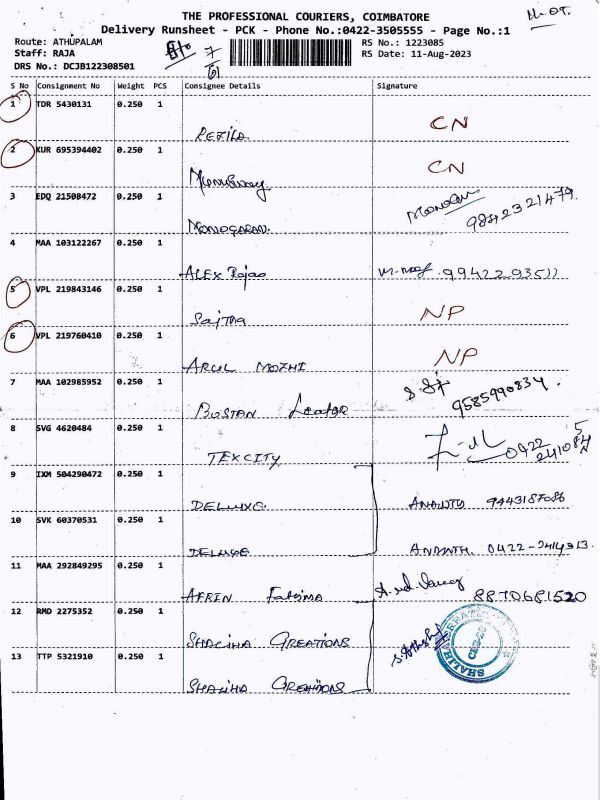 THE PROFESSIONAL COURIERS, COIMBATORE
Delivery Runsheet - PCK - Phone No.:0422-3505555 - Page No.:1
Route: ATHUPALAM RS No.: 1223085
Staff: RAJA RS Date: 11-Aug-2023
DRS No.: DCJB122308501
S No Consignment No Weight PCS Consignee Details Signature
1 TDR 5430131 0.250 1 CN
2 KUR 695394402 0.250 1 CN
3 EDQ 21508472 0.250 1 9842321479
MONOGARAN.
4 MAA 103122267 0.250 1
ALEX Rajao 9942293511
5 VPL 219843146 0.250 1 NP
Sajtha
6 VPL 219760410 0.250 1 NP
ARUL MOZHI
7 MAA 102985952 0.250 1 9585990834
BOSTAN Leator
8 SVG 4620484 0.250 1 0422
TEXCITY
9 IXM 504290472 0.250 1
DELUXE 9443187086
10 SVK 60370531 0.250 1
DELUXE ANANTH. 0422-2414313
11 MAA 292849295 0.250 1
AFRIN Fatima 8870681520
12 RMD 2275352 0.250 1
SHALIHA CREATIONS
13 TTP 5321910 0.250 1
SHALIHA CREATIONS